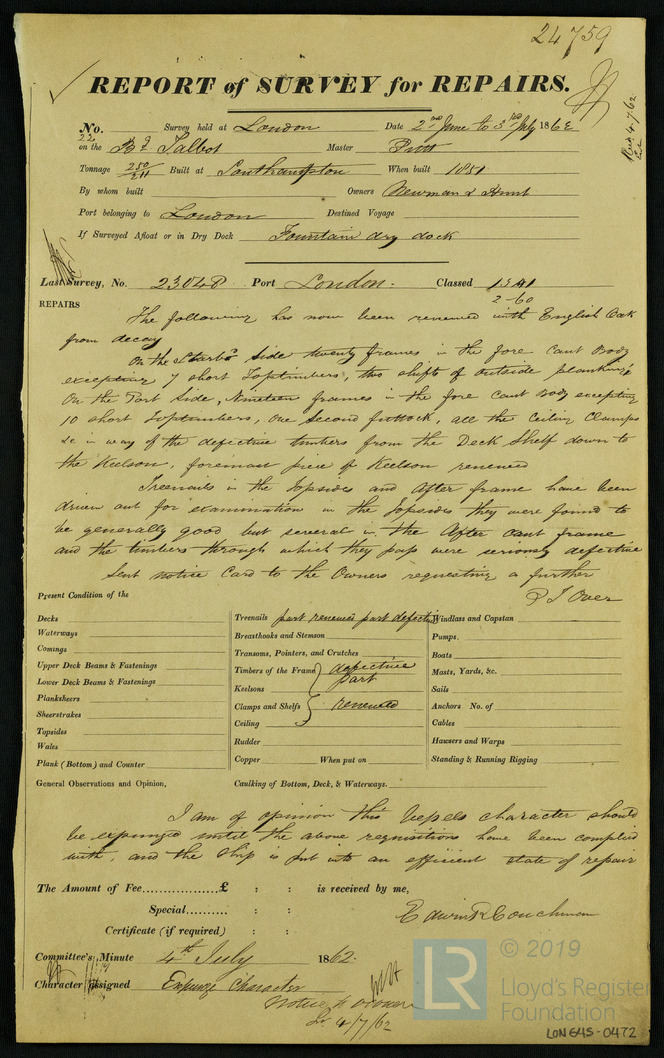 24759
REPORT of SURVEY for REPAIRS.
Recd 4/7/62
No. 22 Survey held at London Date 2nd June to 3rd July 1862
on the Bq Talbot Master Pitt
Tonnage 250/211 Built at Southampton When built 1851
By whom built Owners Newman & Hunt
Port belonging to London Destined Voyage
If Surveyed Afloat or in Dry Dock Fountain dry dock
Last Survey, No. 23048 Port London. Classed 13A1
2-60
REPAIRS
The following has now been renewed with English Oak
from decay
On the Starbd Side twenty frames in the fore Cant Body
excepting 7 short Toptimbers, two shifts of outside planking
On the Port Side, Nineteen frames in the fore Cant Body excepting
10 short Toptimbers, one Second futtock, all the Ceiling Clamps
&c in way of the defective timbers from the Deck Shelf down to
the Keelson, foremost piece of Keelson renewed
Treenails in the Topsides and After frame have been
driven out for examination in the Topsides they were found to
be generally good but several in the After cant frame
and the timbers through which they pass were seriously defective
Sent notice Card to the Owners requesting a further
P T Over
Present Condition of the
Decks
Waterways
Comings
Upper Deck Beams & Fastenings
Lower Deck Beams & Fastenings
Planksheers
Sheerstrakes
Topsides
Wales
Plank (Bottom) and Counter
Treenails part renewed part defective
Breasthooks and Stemson
Transoms, Pointers, and Crutches
Timbers of the Frame defective
Keelsons part
Clamps and Shelfs renewed
Ceiling
Rudder
Copper When put on
Windlass and Capstan
Pumps.
Boats
Masts, Yards, &c.
Sails
Anchors No. of
Cables
Hawsers and Warps
Standing & Running Rigging
General Observations and Opinion, Caulking of Bottom, Deck, & Waterways.
I am of opinion this Vessels character should
be expunged until the above requisitions have been complied
with, and the Ship is put into an efficient state of repair
The Amount of Fee................£ : : is received by me,
Special............ : :
Certificate (if required) : :
Edwin R Couchman
Committee's Minute 4th July 1862.
Character assigned Expunge Character
Notice to owner
4/7/62
© 2019
LR
Lloyd's Register
Foundation
LON645-0472